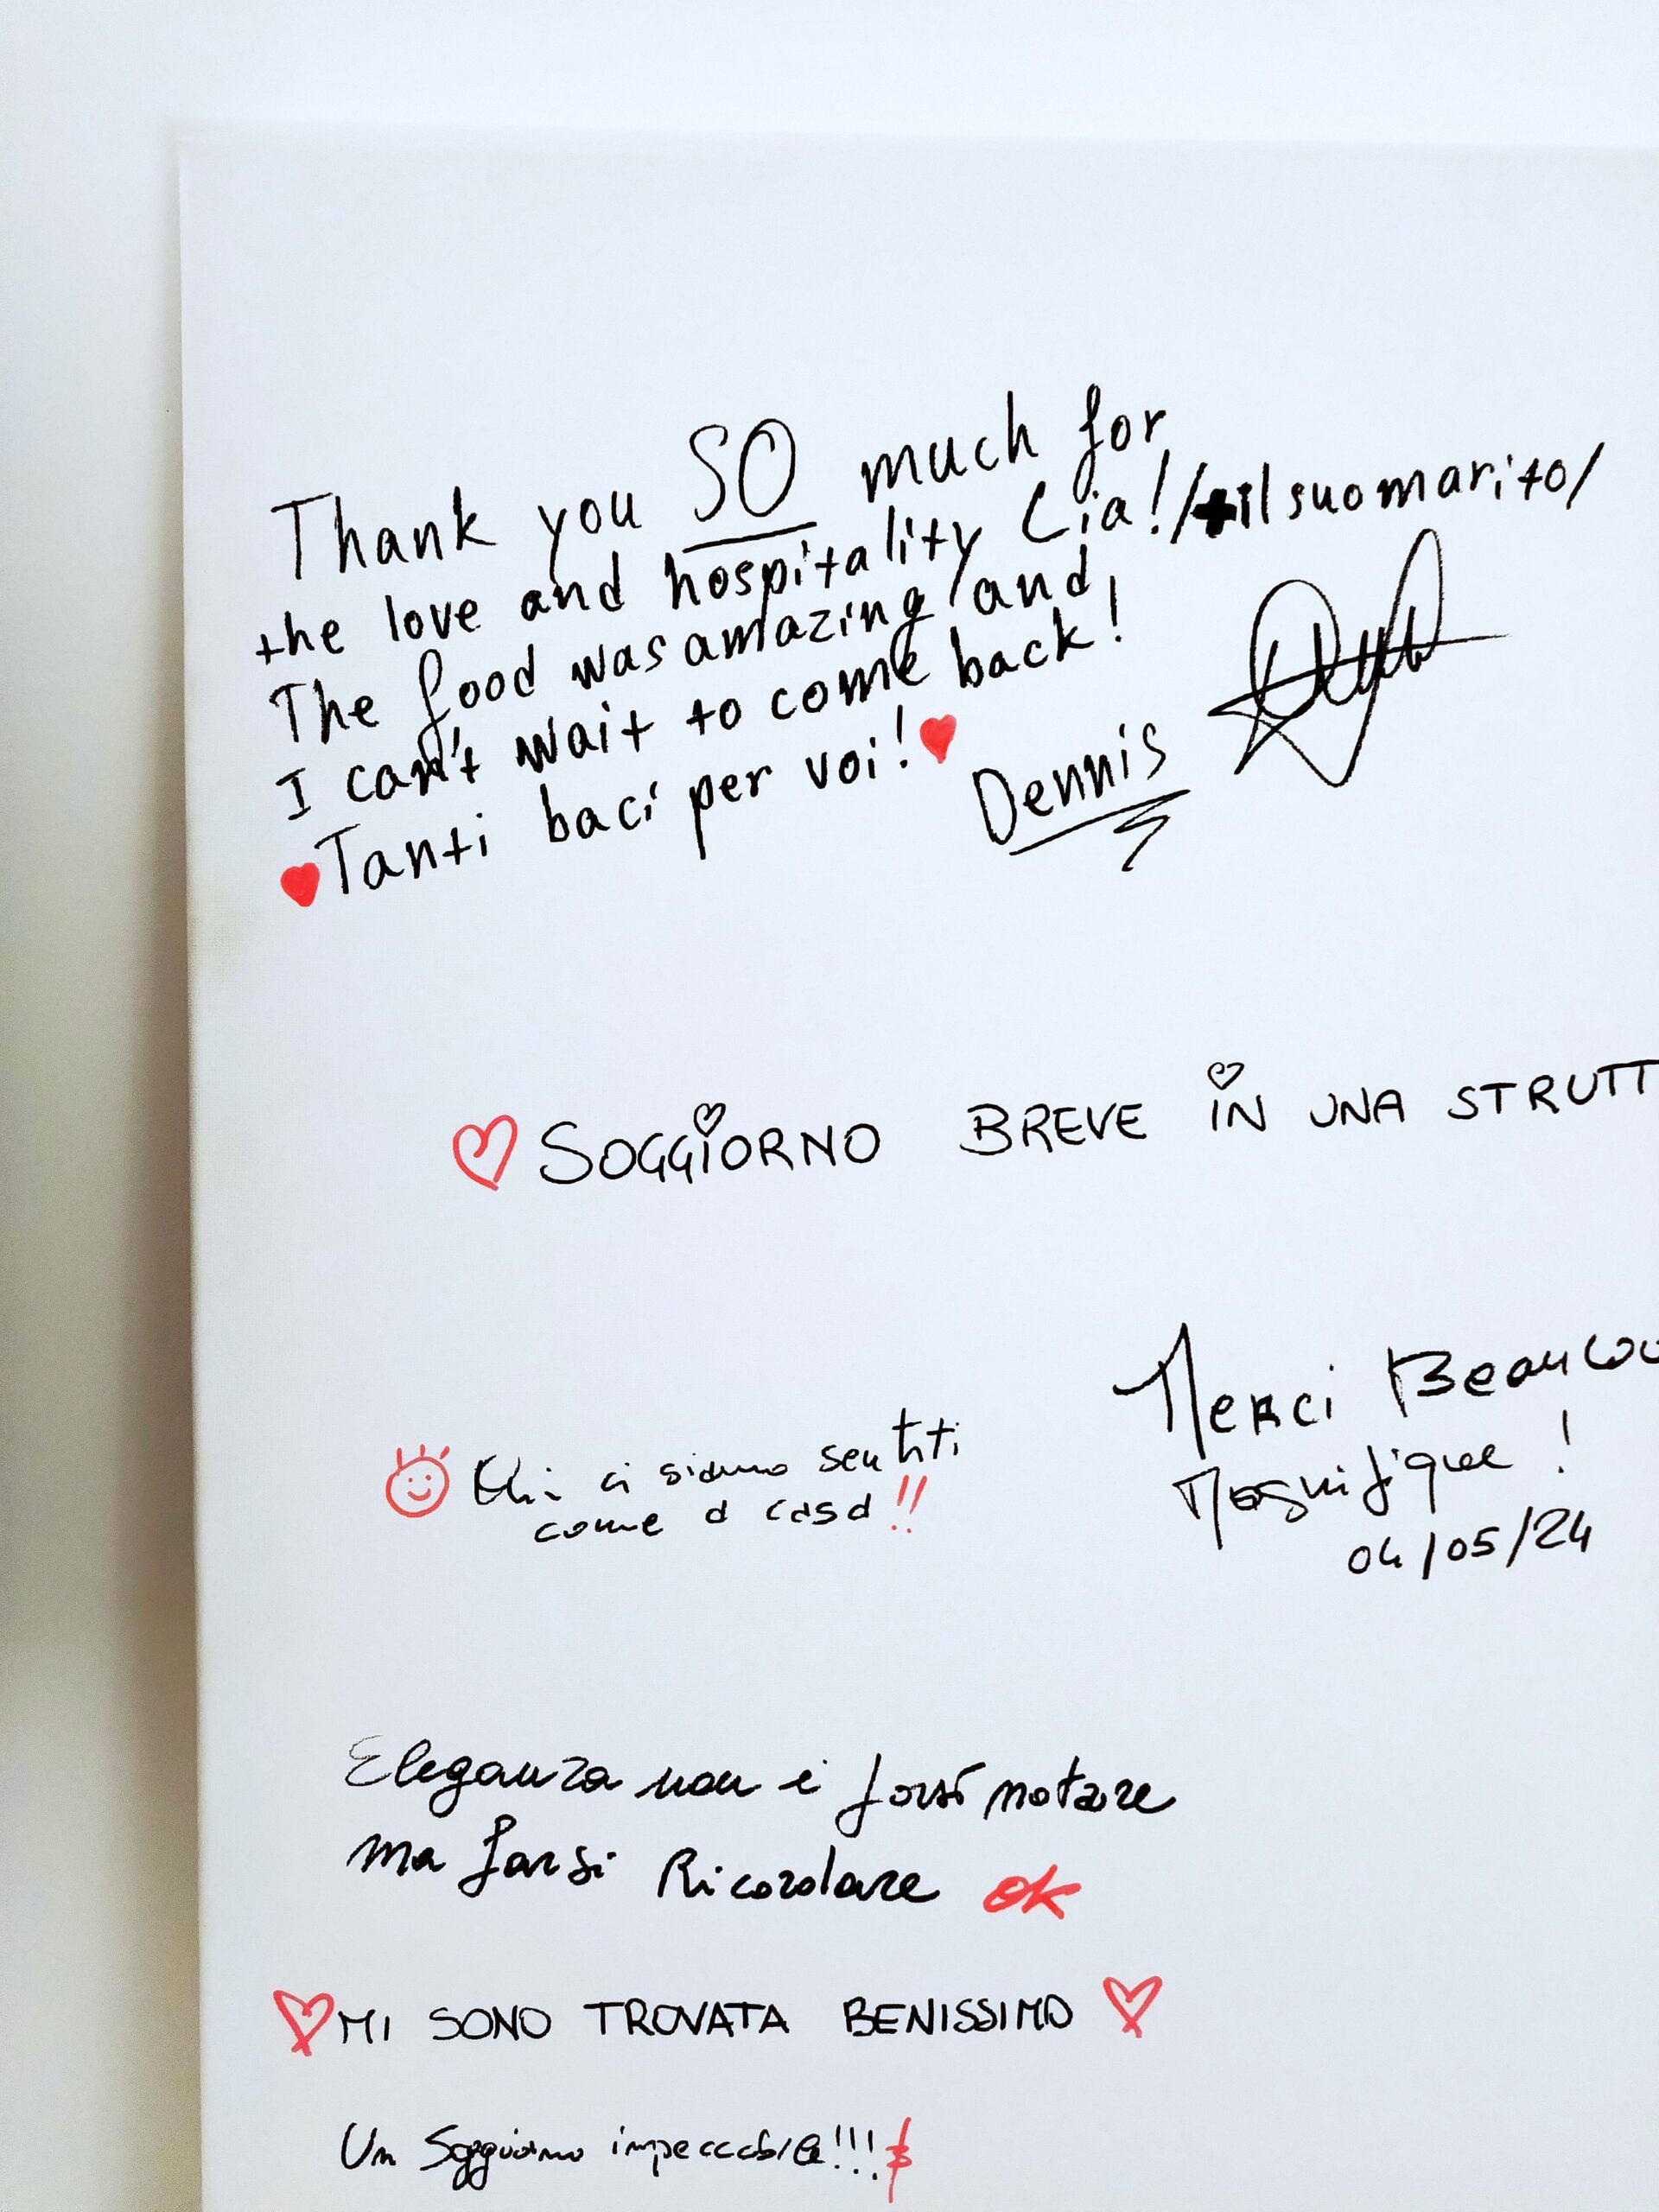 Thank you SO much for
the love and hospitality Lia! /+il suo marito/
The food was amazing and
I can't wait to come back!
Tanti baci per voi!
Dennis
SOGGIORNO BREVE IN UNA STRUTT
Merci Beaucou
Magnifique !
04/05/24
ci siamo sentiti
come a casa!!
Eleganza non è farsi notare
ma farsi Ricordare ok
MI SONO TROVATA BENISSIMO
Un Soggiorno impeccabile!!!